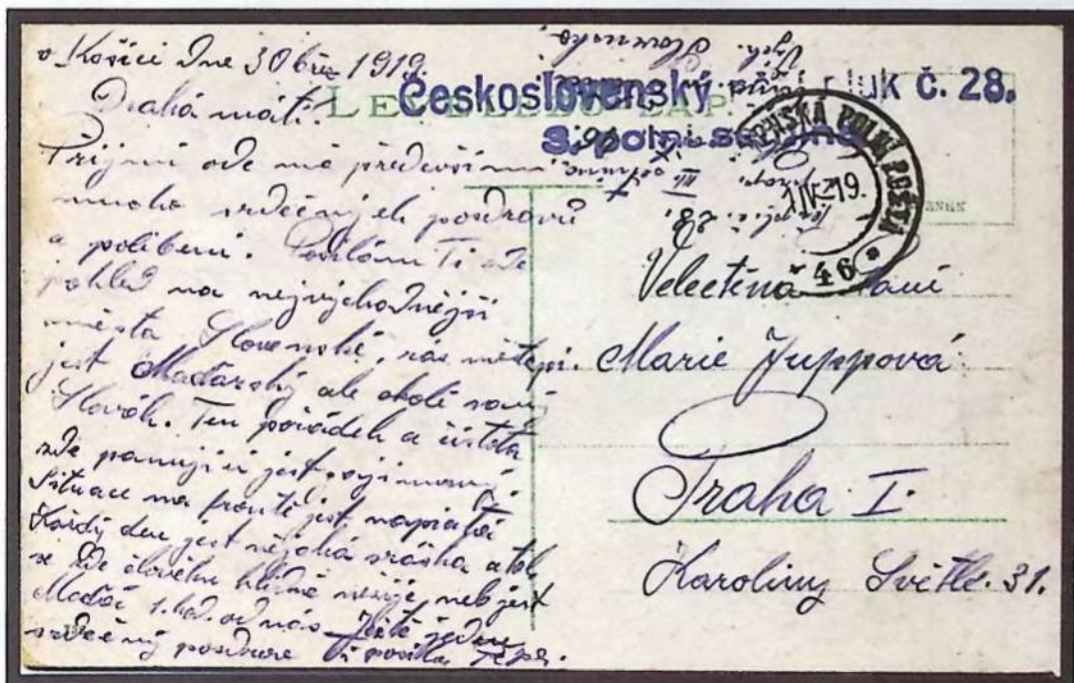 v Košici dne 30 břez 1919.
Drahá máti!
Přijmi ode mě především
mnoho srdečných pozdravů
a políbení. Posílám Ti zde
pohled na nejvýchodnější
města Slovenské, ráz města
jest Maďarský ale okolí samý
Slovák. Ten pořádek a čistota
zde panující jest
Situace na frontě jest napiatá
Každý den jest nějaká srážka a tak
se zde člověku klidně nežije neb jest
Maďar 1. hod. od nás Ještě jednou
srdečný pozdrav
Vých. Slovensko
Pěš. pl. č. 28.
III.
LEVELEZŐ-LAP
Československý pěší pluk č. 28.
3. polní setnina
POLNÍ POŠTA
1 IV. 19.
* 46 *
Velectěná Paní
Marie Juppová
Praha I.
Karoliny Světlé. 31.